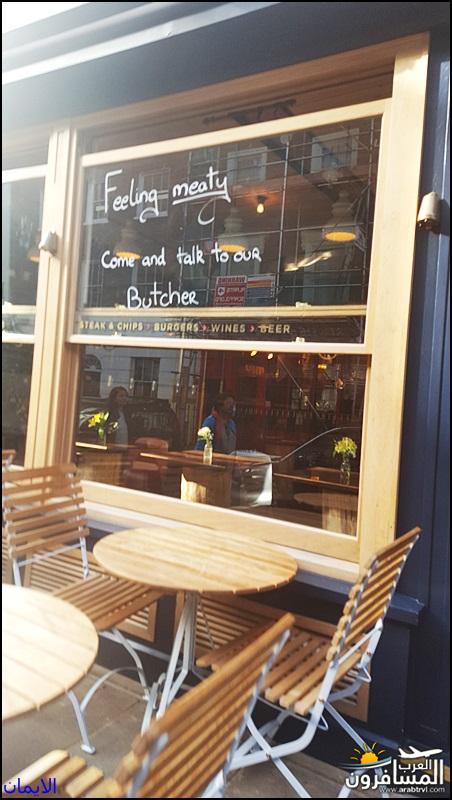 Feeling meaty
Come and talk to our
Butcher
STEAK & CHIPS › BURGERS › WINES › BEER
WARNING
الايمان
العرب
المسافرون
www.arabtrvl.com